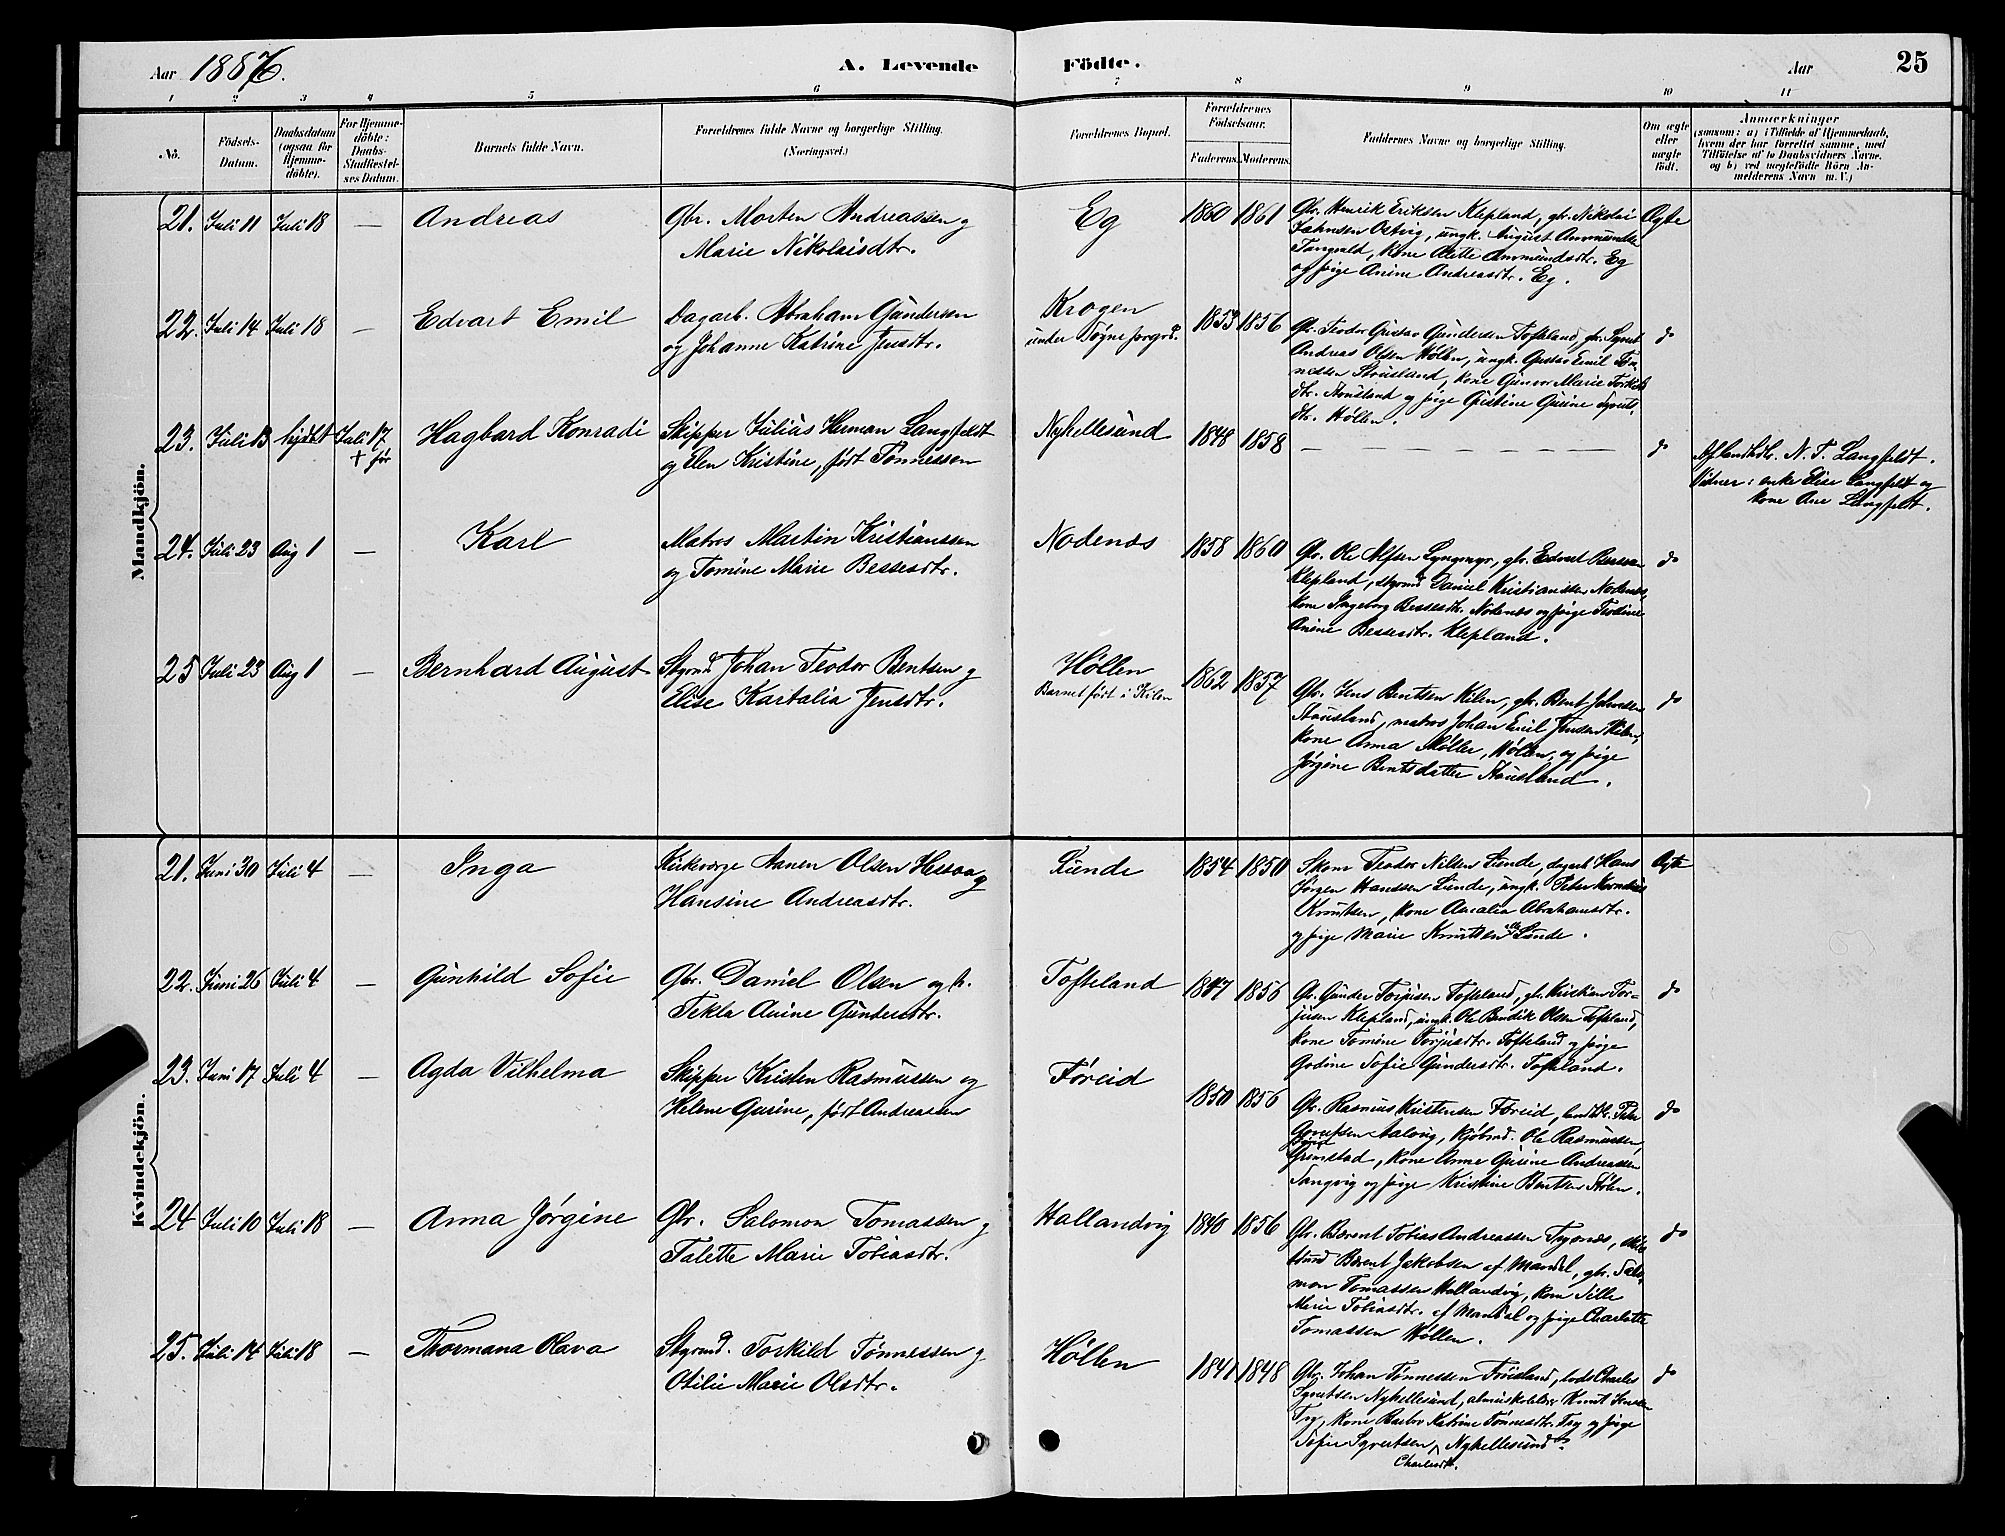 Aar 1886.
A. Levende Födte.
Aar
25
1 2 3 4 5 6 7 8 9 10 11
No.
Födsels-Datum.
Daabsdatum (ogsaa for Hjemmedöbte).
For Hjemmedöbte: Daabs-Stadfæstelses Datum.
Barnets fulde Navn.
Forældrenes fulde Navne og borgerlige Stilling. (Næringsvei.)
Forældrenes Bopæl.
Forældrenes Födselsaar.
Faderens. Moderens.
Faddernes Navne og borgerlige Stilling.
Om ægte eller uægte födt.
Anmærkninger
(saasom: a) i Tilfælde af Hjemmedaab, hvem der har forrettet samme, med Tilföielse af to Daabsvidners Navne, og b) ved uægtefödte Börn Anmelderens Navn m. V.)
Mandkjön.
21. Juli 11 Juli 18 — Andreas
Gbr. Morten Andreassen og
Marie Nikolaisdtr.
Eg 1860 1861
Gbr. Henrik Eriksen Klepland, gbr. Nikolai
Jahnsen Ostvig, ungk. August Ammundsen
Tangvald, kone Alette Ammundsdtr. Eg
og pige Anine Andreasdtr. Eg.
Ægte
22. Juli 14 Juli 18 — Edvart Emil
Dagarb. Abraham Gundersen
og Johanne Katrine Jensdtr.
Krogen
under Tøgne prgrd.
1853 1856
Gbr. Teodor Gustav Gundersen Tofteland, gbr. Syvert
Andreas Olsen Høllen, ungk. Gustav Emil Tøn-
nessen Stausland, kone Gunvor Marie Torkels-
dtr. Stausland og pige Gustine Gurine Syverts-
dtr. Høllen.
do
23. Juli 13 hjdbt Juli 17 + før Hagbard Konradi
Skipper Julius Herman Langfeldt
og Elen Kristine, født Tønnessen
Nyhellesund 1848 1858 — — — — — — do
Aflandhdl. N. T. Langfeldt.
Vidner: enke Elise Langfeldt og
kone Ane Langfeldt.
24. Juli 23 Aug 1 — Karl
Matros Martin Kristianssen
og Tomine Marie Bessesdtr.
Nodenes 1858 1860
Gbr. Ole Alfsen Lyngmyr, gbr. Edvart Bessesen
Klepland, styrmd Daniel Kristianssen Nodenes,
kone Ingeborg Bessesdtr. Nodenes og pige Teodine
Anine Bessesdtr. Klepland.
do
25 Juli 23 Aug 1 — Bernhard August
Styrmd Johan Teodor Bentsen og
Elise Kartalia Jensdtr.
Høllen
Barnet født i Kilen
1862 1857
Gbr. Jens Bentsen Kilen, gbr. Bent Johnsen
Stausland, matros Johan Emil Jensen Kilen,
kone Anna Møller, Høllen, og pige
Jørgine Bentsdatter Stausland.
do
Kvindekjön.
21. Juni 30 Juli 4 — Inga
Kirkeværge Aanen Olsen Hessaa og
Hansine Andreasdtr.
Lunde 1854 1850
Skom Teodor Nilsen Lunde, dagarb Hans
Jørgen Hanssen Lunde, ungk. Peter Kornelius
Knutsen, kone Amalia Abrahamsdtr.
og pige Marie Knutsen Lunde.
Ægte
22. Juni 26 Juli 4 — Gunhild Sofie
Gbr. Daniel Olsen og h.
Tekla Anine Gundersdtr.
Tofteland 1847 1856
Gbr. Gunder Torjusen Tofteland, gbr. Kristian Tor-
jusen Klepland, ungk. Ole Bendik Olsen Tofteland,
kone Tomine Torjusdtr. Tofteland og pige
Godine Sofie Gundersdtr. Tofteland.
do
23. Juni 17 Juli 4 — Agda Vilhelma
Skipper Kristen Rasmussen og
Helene Gurine, født Andreassen
Føreid 1850 1856
Gbr. Rasmus Kristensen Føreid, landhdl. Peter
Govertsen Aalvig, kjøbmd. Ole Rasmussen,
Grimstad, kone Anne Gurine Andreassen
Tangvig og pige Kristine Bentsen Stølen.
do
24 Juli 10 Juli 18 — Anna Jørgine
Gbr. Salomon Tomassen og
Talette Marie Tobiasdtr.
Hallandvig 1840 1856
Gbr. Bærent Tobias Andreassen Trysnes,
Bærent Jakobsen af Mandal, gbr. Salo-
mon Tomassen Hallandvig, kone Sille
Marie Tobiasdtr. af Mandal og pige Charlotte
Tomassen Høllen.
do
25. Juli 14 Juli 18 — Thormana Olava
Styrmd. Torkild Tønnessen og
Otilie Marie Olsdtr.
Høllen 1841 1848
Gbr. Johan Tønnessen Frøisland, lods Charles
Syvertsen Nyhellesund, almuskolelærer Knut Jensen
Try, kone Barbro Katrine Tønnesdtr. Try og pige
Sofie Syvertsen Charlesdtr. Nyhellesund.
do